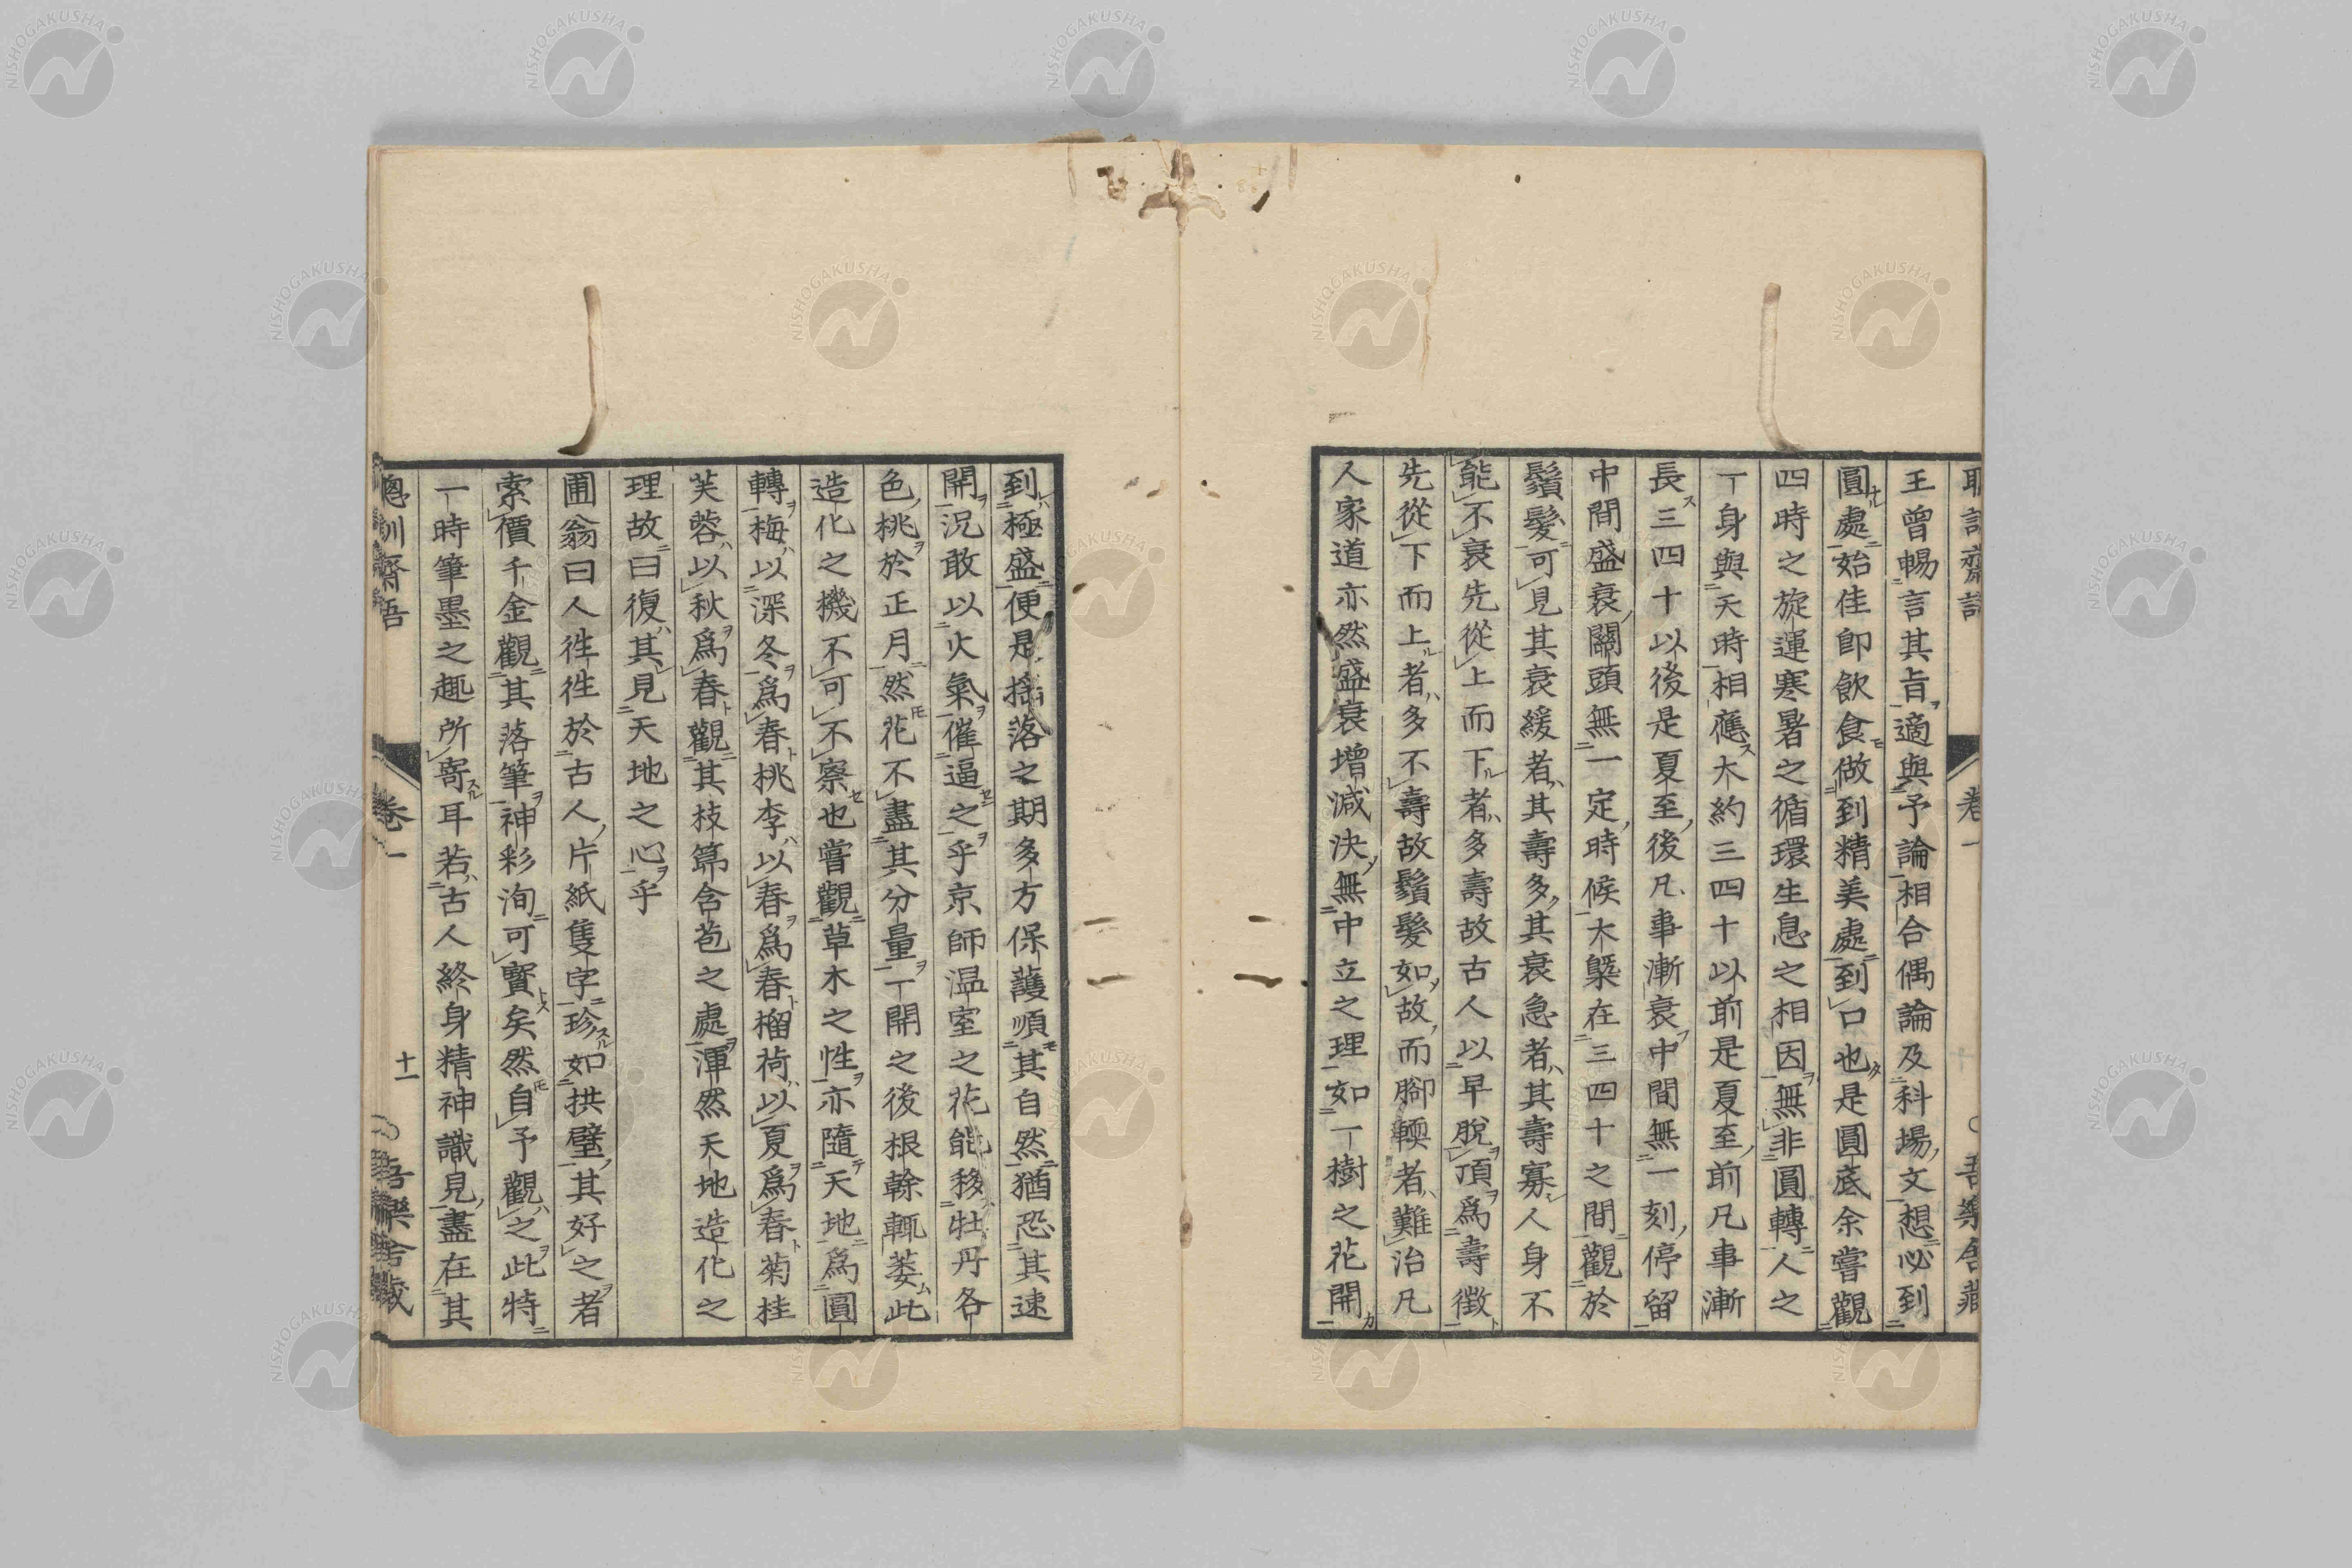 王曾暢言其旨適與予論相合偶論及科場文想必到
圓處始佳卽飮食做到精美處到口也是圓底余嘗觀
四時之旋運寒暑之循環生息之相因無非圓轉人之
一身與天時相應大約三四十以前是夏至前凡事漸
長三四十以後是夏至後凡事漸衰中間無一刻停留
中間盛衰關頭無一定時候大槩在三四十之間觀於
鬚髮可見其衰緩者其壽多其衰急者其壽寡人身不
能不衰先從上而下者多壽故古人以早脫頂爲壽徵
先從下而上者多不壽故鬚髮如故而腳輭者難治凡
人家道亦然盛衰增減決無中立之理如一樹之花開
到極盛便是搖落之期多方保護順其自然猶恐其速
開況敢以火氣催逼之乎京師温室之花能移牡丹各
色桃於正月然花不盡其分量一開之後根幹輒萎此
造化之機不可不察也嘗觀草木之性亦隨天地爲圓
轉梅以深冬爲春桃李以春爲春榴荷以夏爲春菊桂
芙蓉以秋爲春觀其枝節含苞之處渾然天地造化之
理故曰復其見天地之心乎
圃翁曰人徃徃於古人片紙隻字珍如拱璧其好之者
索價千金觀其落筆神彩洵可寶矣然自予觀之此特
一時筆墨之趣所寄耳若古人終身精神識見盡在其
聰訓齋語
卷一
十一
吾樂舍藏